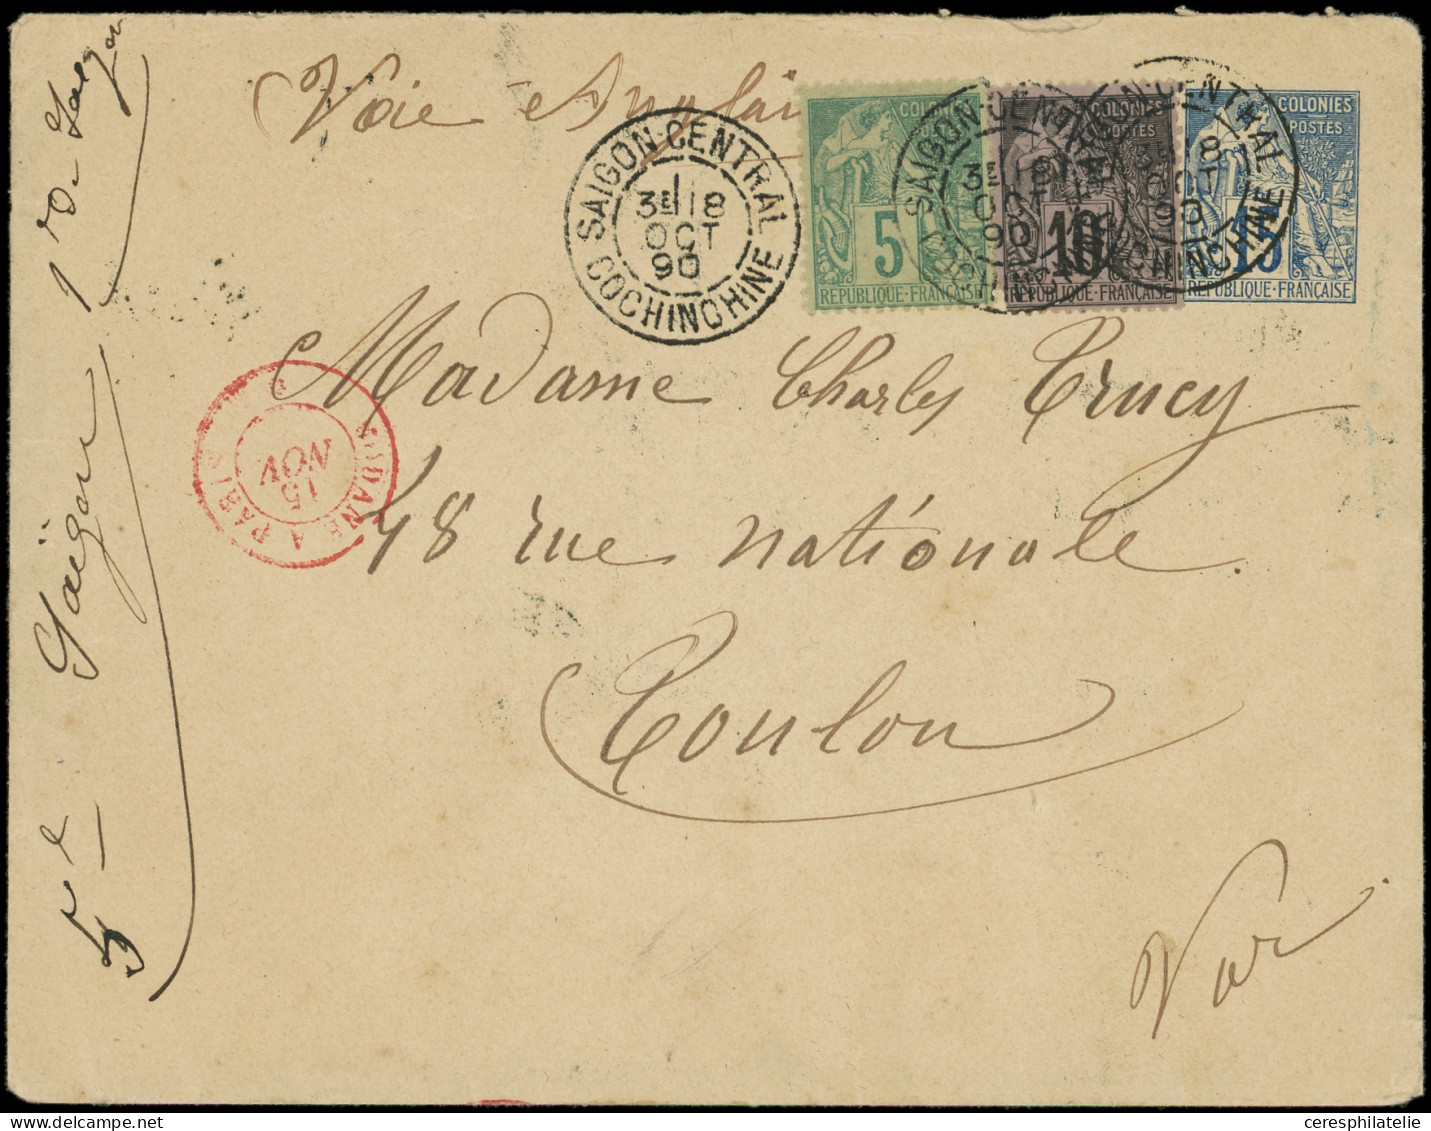 Voie Anglai
SAIGON-CENTRAL
3E 18
OCT
90
COCHINCHINE
COLONIES
5
REPUBLIQUE-FRANÇAISE
SAIGON-CENTRAL
3E 18
OCT
90
COCHINCHINE
COLONIES
POSTES
10
REPUBLIQUE-FRANÇAISE
SAIGON-CENTRAL
3E 18
OCT
90
COCHINCHINE
COLONIES
POSTES
15
REPUBLIQUE-FRANÇAISE
Madame Charles Trucy
48 rue nationale.
Toulon
Var
A PARIS
15
NOV
Saïgon
ceresphilatelic.com